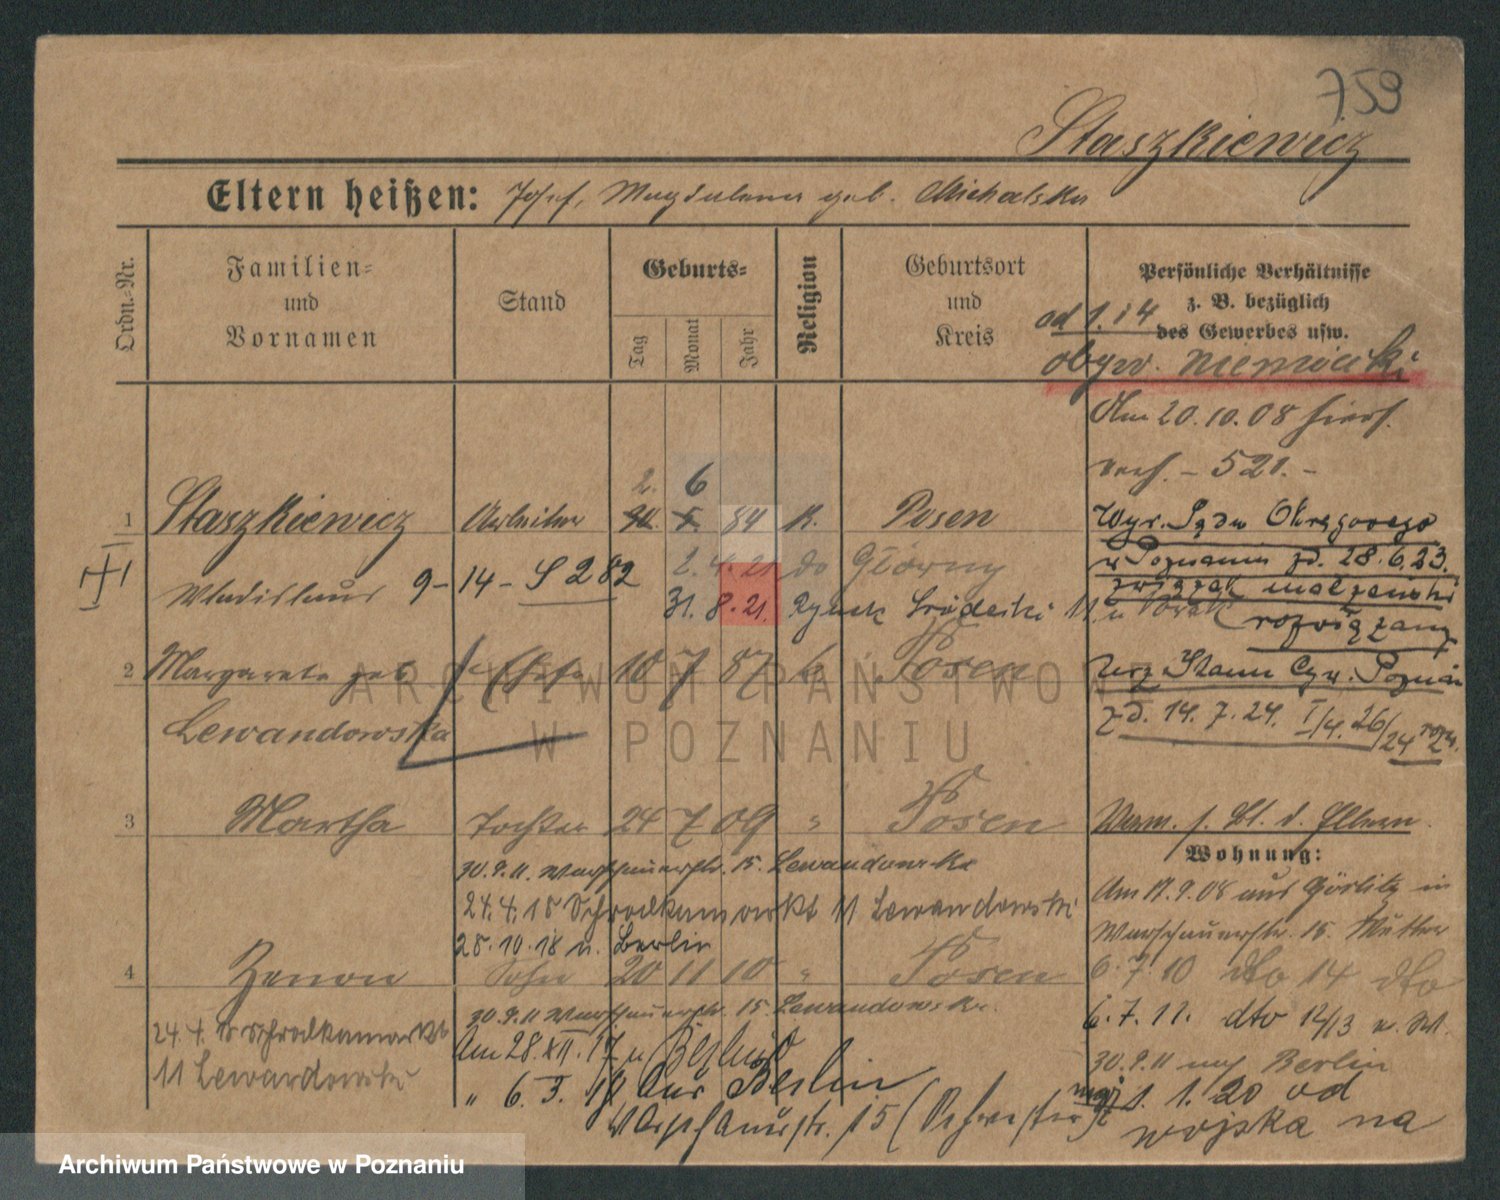 759
Staszkiewicz
Eltern heißen: Josef, Magdalena geb. Michalska
Ordn.-Nr.
Familien-
und
Vornamen
Stand
Geburts-
Tag
Monat
Jahr
Religion
Geburtsort
und
Kreis
Persönliche Verhältnisse
z. B. bezüglich
des Gewerbes usw.
od 1.
obyw. niemiecki
Am 20.10.08
521.-
2. 6
1 Staszkiewicz Arbeiter 84 K. Posen
Wladislaus 9-14- S 282
2.4.21 do Główny
31.8.21. Rynek Śródecki 11.
Wyr. Sądu Okręgowego
w Poznaniu zd. 28.6.23.
związek małżeński
rozwiązany
2 Margareta geb. Ehefr. 10 7 87 k. Posen
Lewandowska
Urz. Stanu Cyw. Poznań
zd. 14.7.24.
3 Martha Tochter 24 7 09 " Posen
30.9.11. Warschauerstr. 15. Lewandowska
24.4.18 Schrodkamarkt 11 Lewandowski
28.10.18 n. Berlin
4 Zenon Sohn 20 11 10 " Posen
30.9.11 Warschauerstr. 15. Lewandowska.
24.4. Schrodkamarkt
11 Lewandowski
Am 28.XII.17
" 6. 3. 18 aus Berlin
Warschauerstr. 15 (Schwester)
Wohnung:
Am 17.9.08 aus Görlitz in
Warschauerstr. 15. Mutter
6.7.10 dto 14 dto
6.7.11. dto 12/13
30.9.11 nach Berlin
1. 1. 20 od
wojska na
ARCHIWUM PAŃSTWOWE
W POZNANIU
Archiwum Państwowe w Poznaniu